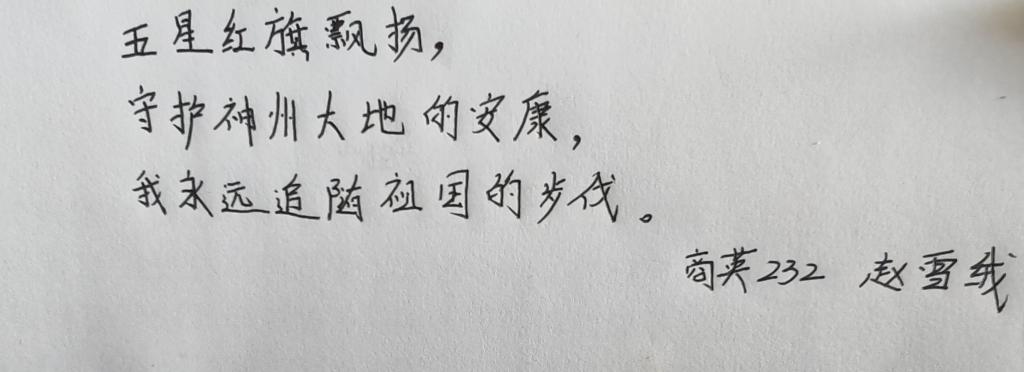 五星红旗飘扬，
守护神州大地的安康，
我永远追随祖国的步伐。
商英232 赵雪